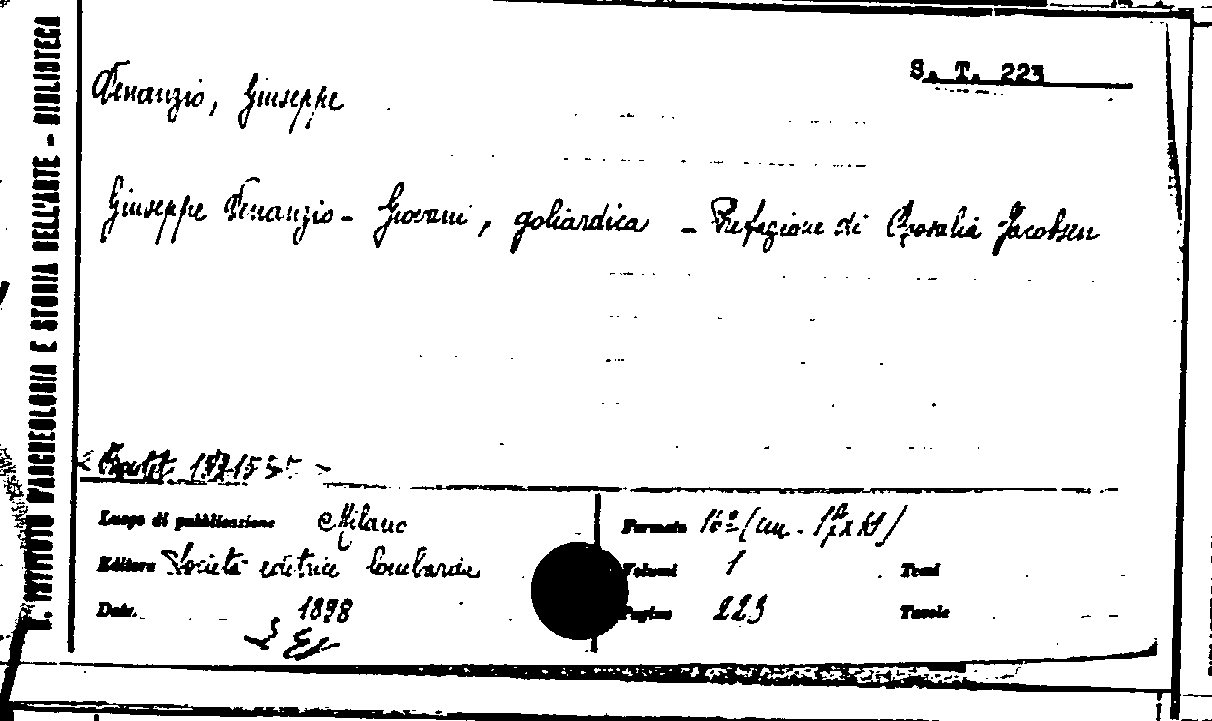 R. ISTITUTO D'ARCHEOLOGIA E STORIA DELL'ARTE - BIBLIOTECA
S. T. 223
Venanzio, Giuseppe
Giuseppe Venanzio - Giovani, goliardica - Prefazione di Rosalia Jacobsen
Luogo di pubblicazione Milano
Formato 16º (cm.
Editore Società editrice lombarda
Volumi 1
Tomi
Data 1898
Pagine 223
Tavole